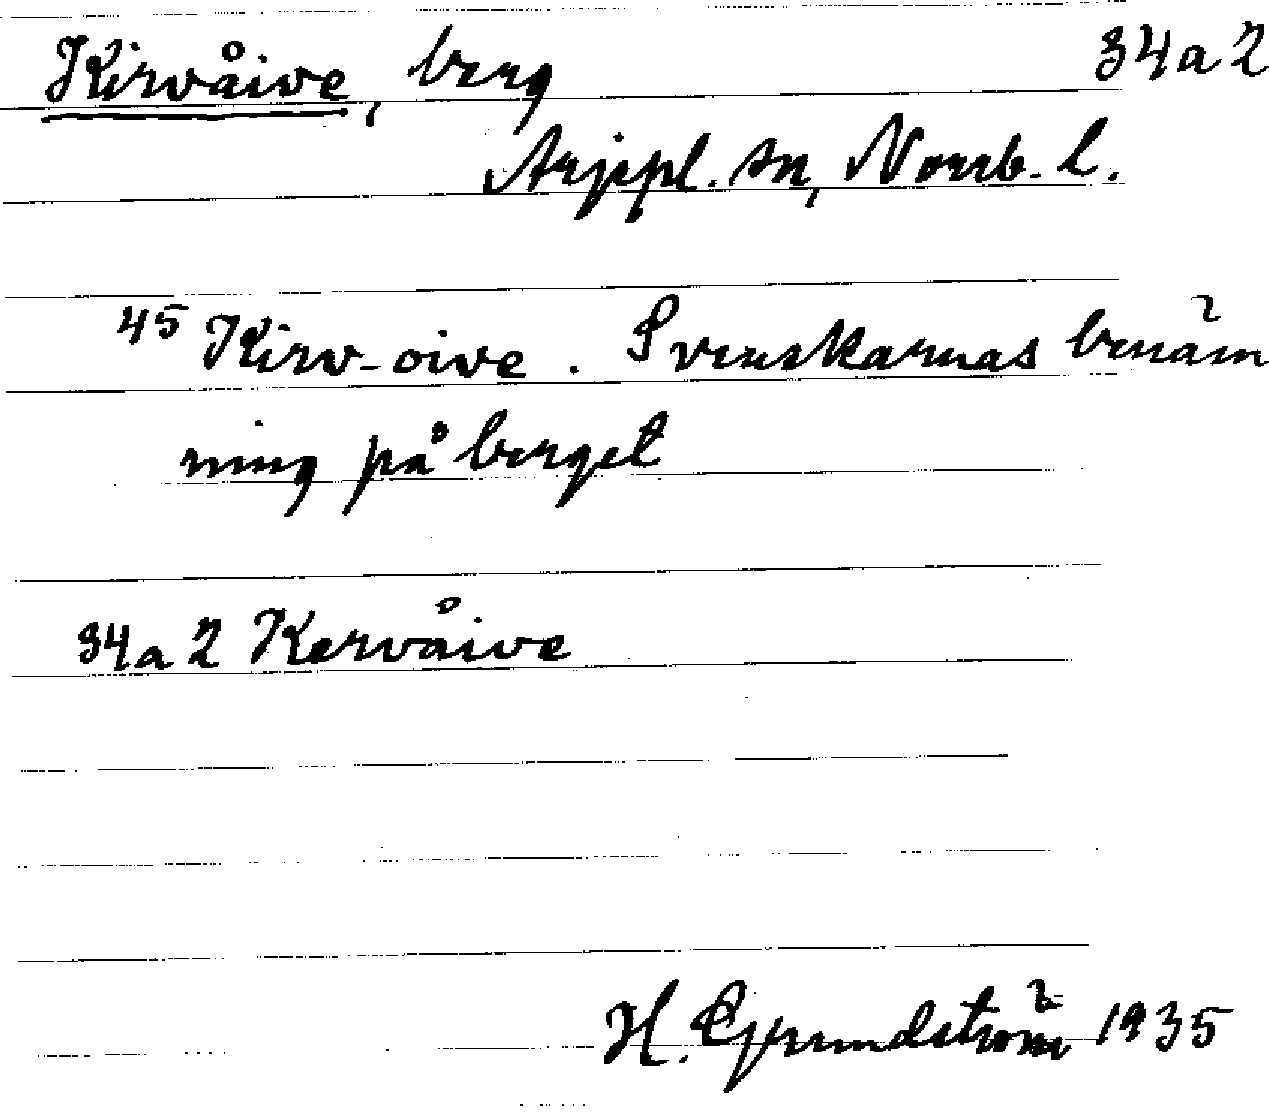 Kirvåive, berg 34a2
Arjepl. sn, Norrb. l.
45 Kirv-oive. Svenskarnas benäm
ning på berget
34a2 Kervåive
H. Grundström 1935